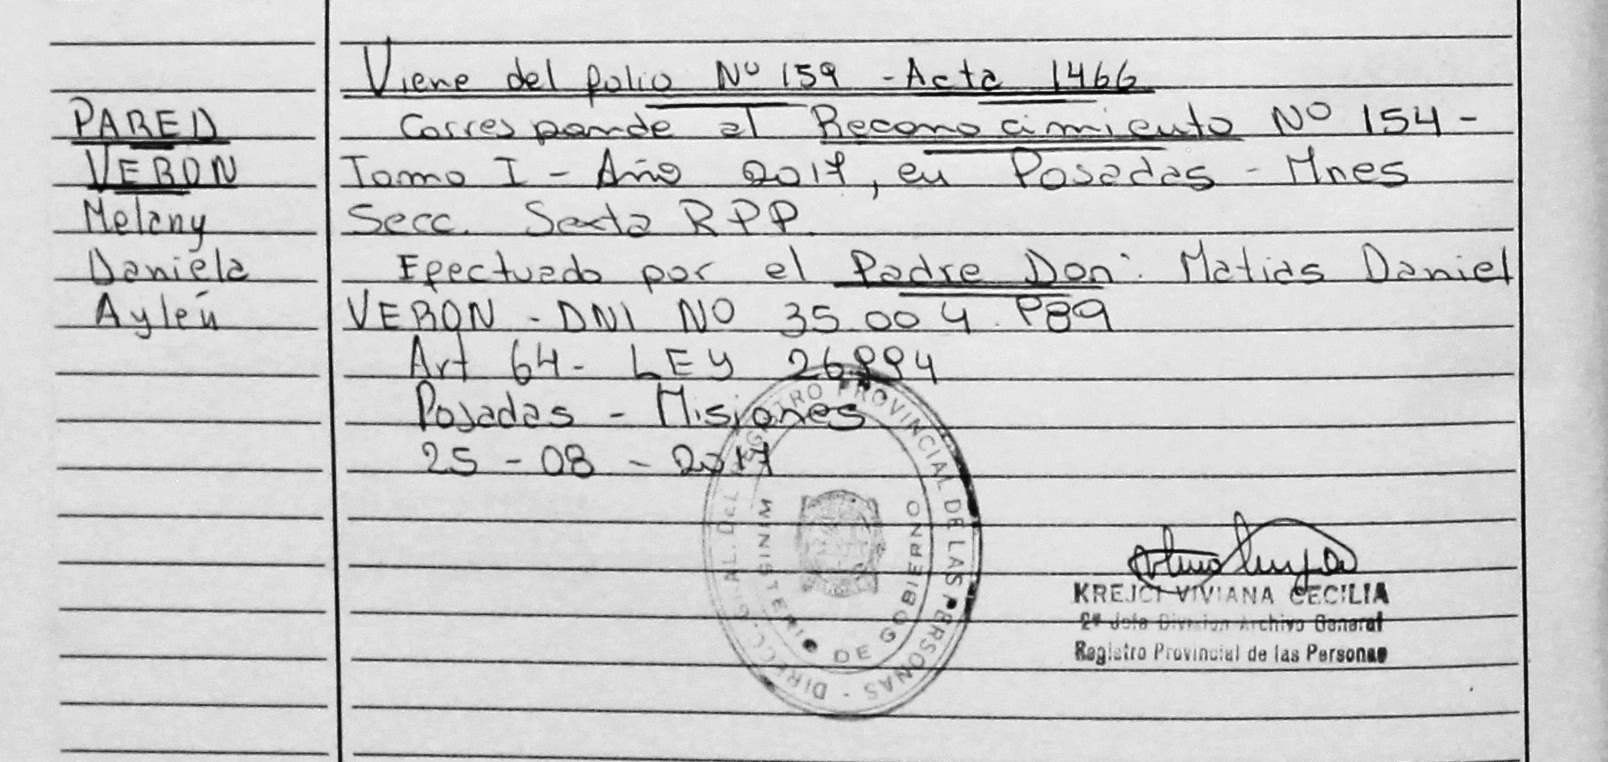 Viene del folio Nº 159 - Acta 1466
PARED
VERON
Melany
Daniela
Aylén
Corresponde al Reconocimiento Nº 154 -
Tomo I - Año 2017, en Posadas - Mnes
Secc. Sexta RPP.
Efectuado por el Padre Don: Matias Daniel
VERON - DNI Nº 35.004.989
Art 64 - LEY 26994
Posadas - Misiones
25 - 08 - 2017
REGISTRO PROVINCIAL DE LAS PERSONAS
MINISTERIO DE GOBIERNO
KREJCI VIVIANA CECILIA
2º Jefe Division Archivo General
Registro Provincial de las Personas